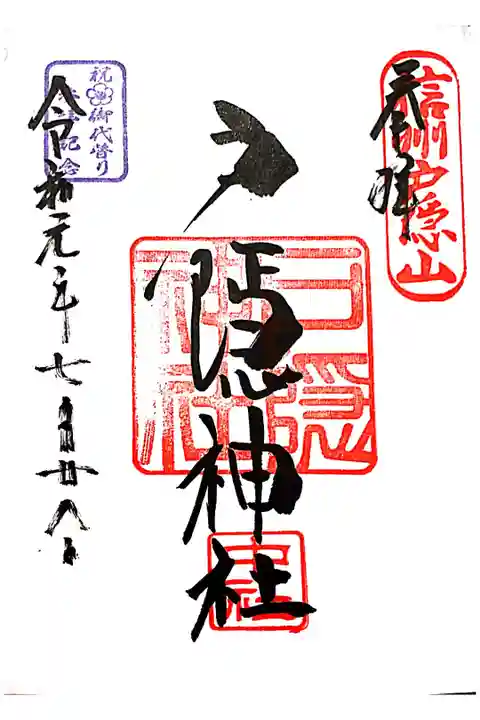 奉拝
信州戸隠山
戸隠神社
戸隠神社
中社
祝御代替り
記念
令和元年七月廿八日